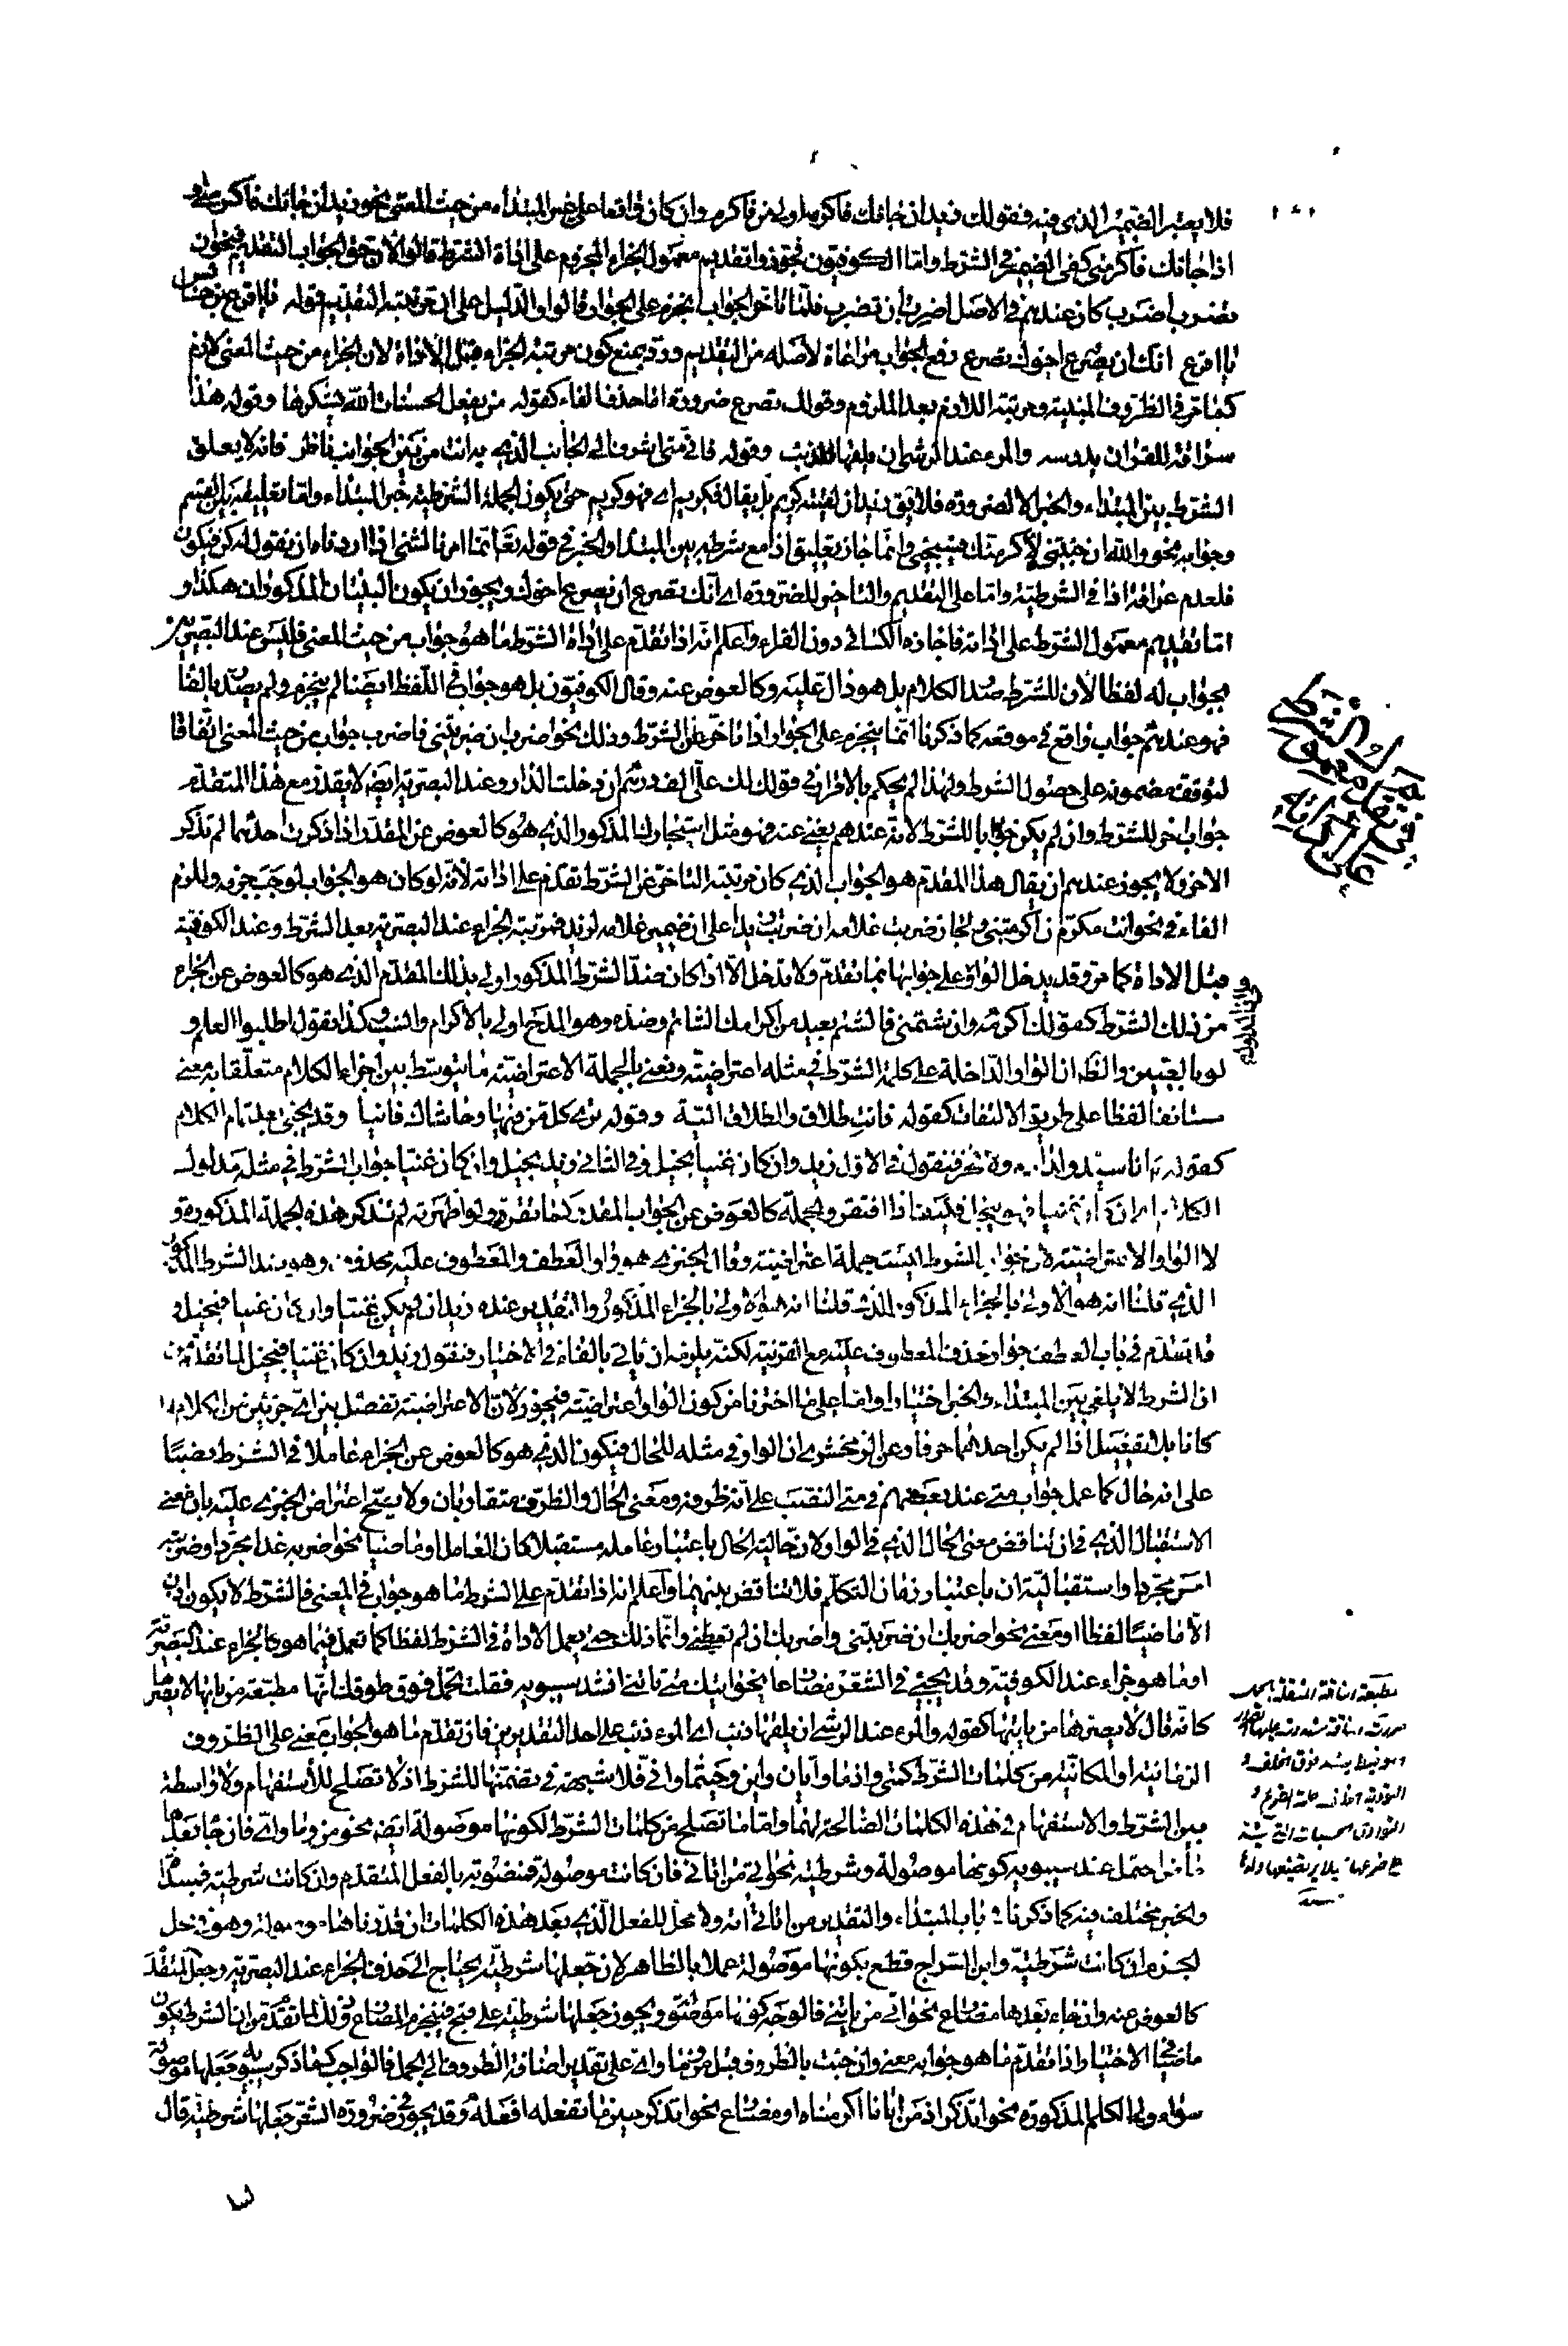 فلا يعتبر الضمير الذي فيه فقولك زيد ان جاءك فاكرمه اولى من فاكرم وان كان واقعا على خبر المبتداء من حيث المعنى نحو زيد ان جاءك فاكرمني و
اذا جاءك فاكرمني كفى الضمير في الشرط واما الكوفيون فيجوزوا تقديم معمول الجزاء المجزوم على اداة الشرط قالوا لان حق الجواب التقديم فنحو ان
تضرب اضرب كان عندهم في الاصل اضرب ان تضرب فلما تاخر الجواب انجزم على الجوار قالوا والدليل على ان مرتبته التقديم قوله يا اقرع بن حابس
يا اقرع انك ان يصرع اخوك تصرع رفع الجواب مراعاة لاصله من التقديم ورد بمنع كون مرتبة الجزاء قبل الاداة لان الجزاء من حيث المعنى لازم
كما مر في الظروف المبنية ومرتبة اللازم بعد الملزوم وقولك تصرع ضرورة اما حذف الفاء كقوله من يفعل الحسنات الله يشكرها وقوله هذا
سراقة للقران يدرسه والمرء عند الرشى ان يلقها ذيب وقوله فاني متى اشرف الى الجانب الذي به انت من بين الجوانب ناظر فانه لا يعلق
الشرط بين المبتداء والخبر الا لضرورة فلا يق زيد ان لقيته كريم بل يقال فكريم اي فهو كريم حتى يكون الجملة الشرطية خبر المبتداء واما تعليقه بين القسم
وجوابه نحو والله ان جئتني لاكرمنك فسيجئ وانما جاز تعليق اذا مع شرطه بين المبتدا والخبر في قوله تعا انما امرنا لشئ اذا اردناه ان نقول له كن فيكون
فلعدم عراقة اذا في الشرطية واما على التقديم والتاخير للضرورة اي انك تصرع ان يصرع اخوك ويجوز ان يكون البيتان المذكوران هكذا و
اما تقديم معمول الشرط على اداته فاجازه الكسائي دون الفراء واعلم انه اذا تقدم على اداة الشرط ما هو جواب من حيث المعنى فليس عند البصريين
بجواب له لفظا لان للشرط صدر الكلام بل هو دال عليه وكالعوض عنه وقال الكوفيون بل هو جواب في اللفظ ايضا لم ينجزم ولم يصدر بالفاء
فهو عندهم جواب واقع في موقعه كما ذكرنا انما ينجزم على الجوار اذا تاخر عن الشرط وذلك نحو اضرب ان ضربتني فاضرب جواب من حيث المعنى اتفاقا
لتوقف مضمونه على حصول الشرط ولهذا لم يحكم بالاقرار في قولك لك علي الف درهم ان دخلت الدار وعند البصرية ايض لا يقدر مع هذا المتقدم
جواب اخر للشرط وان لم يكن جوابا للشرط لانه عندهم يغني عنه فهو مثل استجارك المذكور الذي هو كالعوض عن المقدر اذا ذكرت احدهما لم تذكر
الاخر ولا يجوز عندهم ان يقال هذا المقدم هو الجواب الذي كان مرتبته التاخر عن الشرط تقدم على اداته لانه لو كان هو الجواب لوجب جزمه وللزم
الفاء في نحو انت مكرم ان اكرمتني ولجاز ضربت غلامه ان ضربت زيدا على ان ضمير غلامه لزيد فمرتبة الجزاء عند البصرية بعد الشرط وعند الكوفية
قبل الاداة كما مر وقد يدخل الواو على جوابها بما تقدم ولا تدخل الا اذا كان ضد الشرط المذكور اولى بذلك المقدم الذي هو كالعوض عن الجزاء
من ذلك الشرط كقولك اكرمه وان شتمني فالشتم بعيد من اكرامك الشاتم وضده وهو المدح اولى بالاكرام والنسب وكذا تقول اطلبوا العلم و
لو بالصين والظ ان الواو الداخلة على كلمة الشرط في مثله اعتراضية ونعني بالجملة الاعتراضية ما يتوسط بين اجزاء الكلام متعلقا به معنى
مستانفا لفظا على طريق الالتفات كقوله فانت طلاق والطلاق الية وقوله يرى كل من فيها وحاشاك فانيا وقد يجئ بعد تمام الكلام
كقوله انا سيد ولد ادم ولا فخر فنقول في الاول زيد وان كان غنيا بخيل وفي الثاني زيد بخيل وان كان غنيا جواب الشرط في مثله مدلول
الكلام اي ان كان غنيا فهو بخيل فكيف اذا افتقر والجملة كالعوض عن الجواب المقدر كما تقرر ولو اظهرته لم تذكر هذه الجملة المذكورة و
لا الواو الاعتراضية لان جواب الشرط ليست جملة اعتراضية وقال الجنزي هو واو العطف والمعطوف عليه محذوف وهو ضد الشرط المذكور
الذي قلنا انه هو الاولى بالجزاء المذكور الذي قلنا انه هو اولى بالجزاء المذكور والتقدير عنده زيد ان لم يكن غنيا وان كان غنيا فبخيل و
قد تقدم في باب العطف جواز حذف المعطوف عليه مع القرينة لكنه يلزمه ان ياتي بالفاء في الاختيار فنقول زيد وان كان غنيا فبخيل لما تقدم من
ان الشرط لا يلغى بين المبتداء والخبر اختيارا واما على ما اخترنا من كون الواو اعتراضية فيجوز لان الاعتراضية تفصل بين اي جزئين من الكلام
كانا بلا تفصيل اذا لم يكن احدهما حرفا وعن الزمخشري ان الواو في مثله للحال فيكون الذي هو كالعوض عن الجزاء عاملا في الشرط نصبا
على انه حال كما عمل جواب متى عند بعضهم في متى النصب على انه ظرفه ومعنى الحال والظرف متقاربان ولا يصح اعتراض الجنزي عليه بان معنى
الاستقبال الذي في ان تناقض معنى الحال الذي في الواو لان حالية الحال باعتبار عامله مستقبلا كان العامل او ماضيا نحو اضربه غدا مجردا وضربته
امس مجردا واستقبالية ان باعتبار زمان التكلم فلا تناقض بينهما واعلم انه اذا تقدم على الشرط ما هو جواب في المعنى فالشرط لا يكون
الا ماضيا لفظا او معنى نحو اضربك ان ضربتني واضربك ان لم تعطني وانما ذلك حتى يعمل الاداة في الشرط لفظا كما تعمل فيما هو كالجزاء عند البصرية
او ما هو جزاء عند الكوفية وقد يجئ في الشعر مضارعا نحو اتيك متى تاتني انشد سيبويه فقلت تحمل فوق طوقك انها مطبعة من ياتها لا يضيرها
كانه قال لا يضيرها من ياتها كقوله والمرء عند الرشى ان يلقها ذئب اي المرء ذئب على احد التقديرين فان تقدم ما هو الجواب معنى على الظروف
الزمانية او المكانية من كلمات الشرط كمتى واذما وايان واين وحيثما وانى فلا شبهة في تضمنها للشرط اذ لا تصلح للاستفهام ولا واسطة
بين الشرط والاستفهام في هذه الكلمات الصالحة لهما واما ما تصلح من كلمات الشرط لكونها موصولة ايض نحو من وما واي فان جاء بعدها
ماض احتمل عند سيبويه كونها موصولة وشرطية نحو اتي من اتاني فان كانت موصولة فمنصوبة بالفعل المتقدم وان كانت شرطية فمبتدا
والخبر مختلف فيه كما ذكرنا في باب المبتداء والتقدير من اتاني اته ولا محل للفعل الذي بعد هذه الكلمات ان قدرناها موصولة وهو في محل
الجزم ان كانت شرطية وابن السراج قطع بكونها موصولة عملا بالظاهر لان جعلها شرطية يحتاج الى حذف الجزاء عند البصرية وجعل المتقدم
كالعوض عنه وان جاء بعدها مضارع نحو اتي من ياتيني فالوجه كونها موصولة ويجوز جعلها شرطية على قبح فينجزم المضارع وذلك لما تقدم من ان الشرط يكون
ماضيا في الاختيار اذا تقدم ما هو جوابه معنى وان جئت بالظروف قبل من وما واي على تقدير اضافة الظروف الى الجمل فالواجب كما ذكر سيبويه جعلها موصولة
سواء ولى الكلم المذكورة نحو اتذكر اذ من اتانا اكرمناه او مضارع نحو اتذكر حين ما تفعله افعله وقد يجوز في ضرورة الشعر جعلها شرطية قال